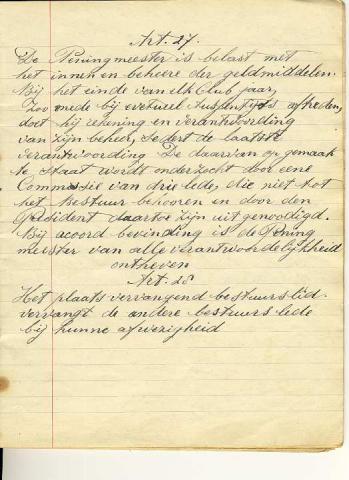 Art. 27.
De Peningmeester is belast met
het innen en beheere der geldmiddelen.
Bij het einde van elk Club jaar,
Zoo mede bij eventueel tusschentijds aftreden,
doet hij rekening en verantwoording
van zijn beheer, sedert de laatste
verantwoording De daarvan op gemaak
te Staat wordt onderzocht door eene
Commissie van drie lede, die niet tot
het Bestuur behooren en door den
President daartoe zijn uit genoodigd.
Bij acoord bevinding is de Pening
meester van alle verantwoordelijkheid
ontheven
Art. 28
Het plaats vervangend bestuurs lid-
vervangt de andere bestuurs lede
bij hunne afwezigheid